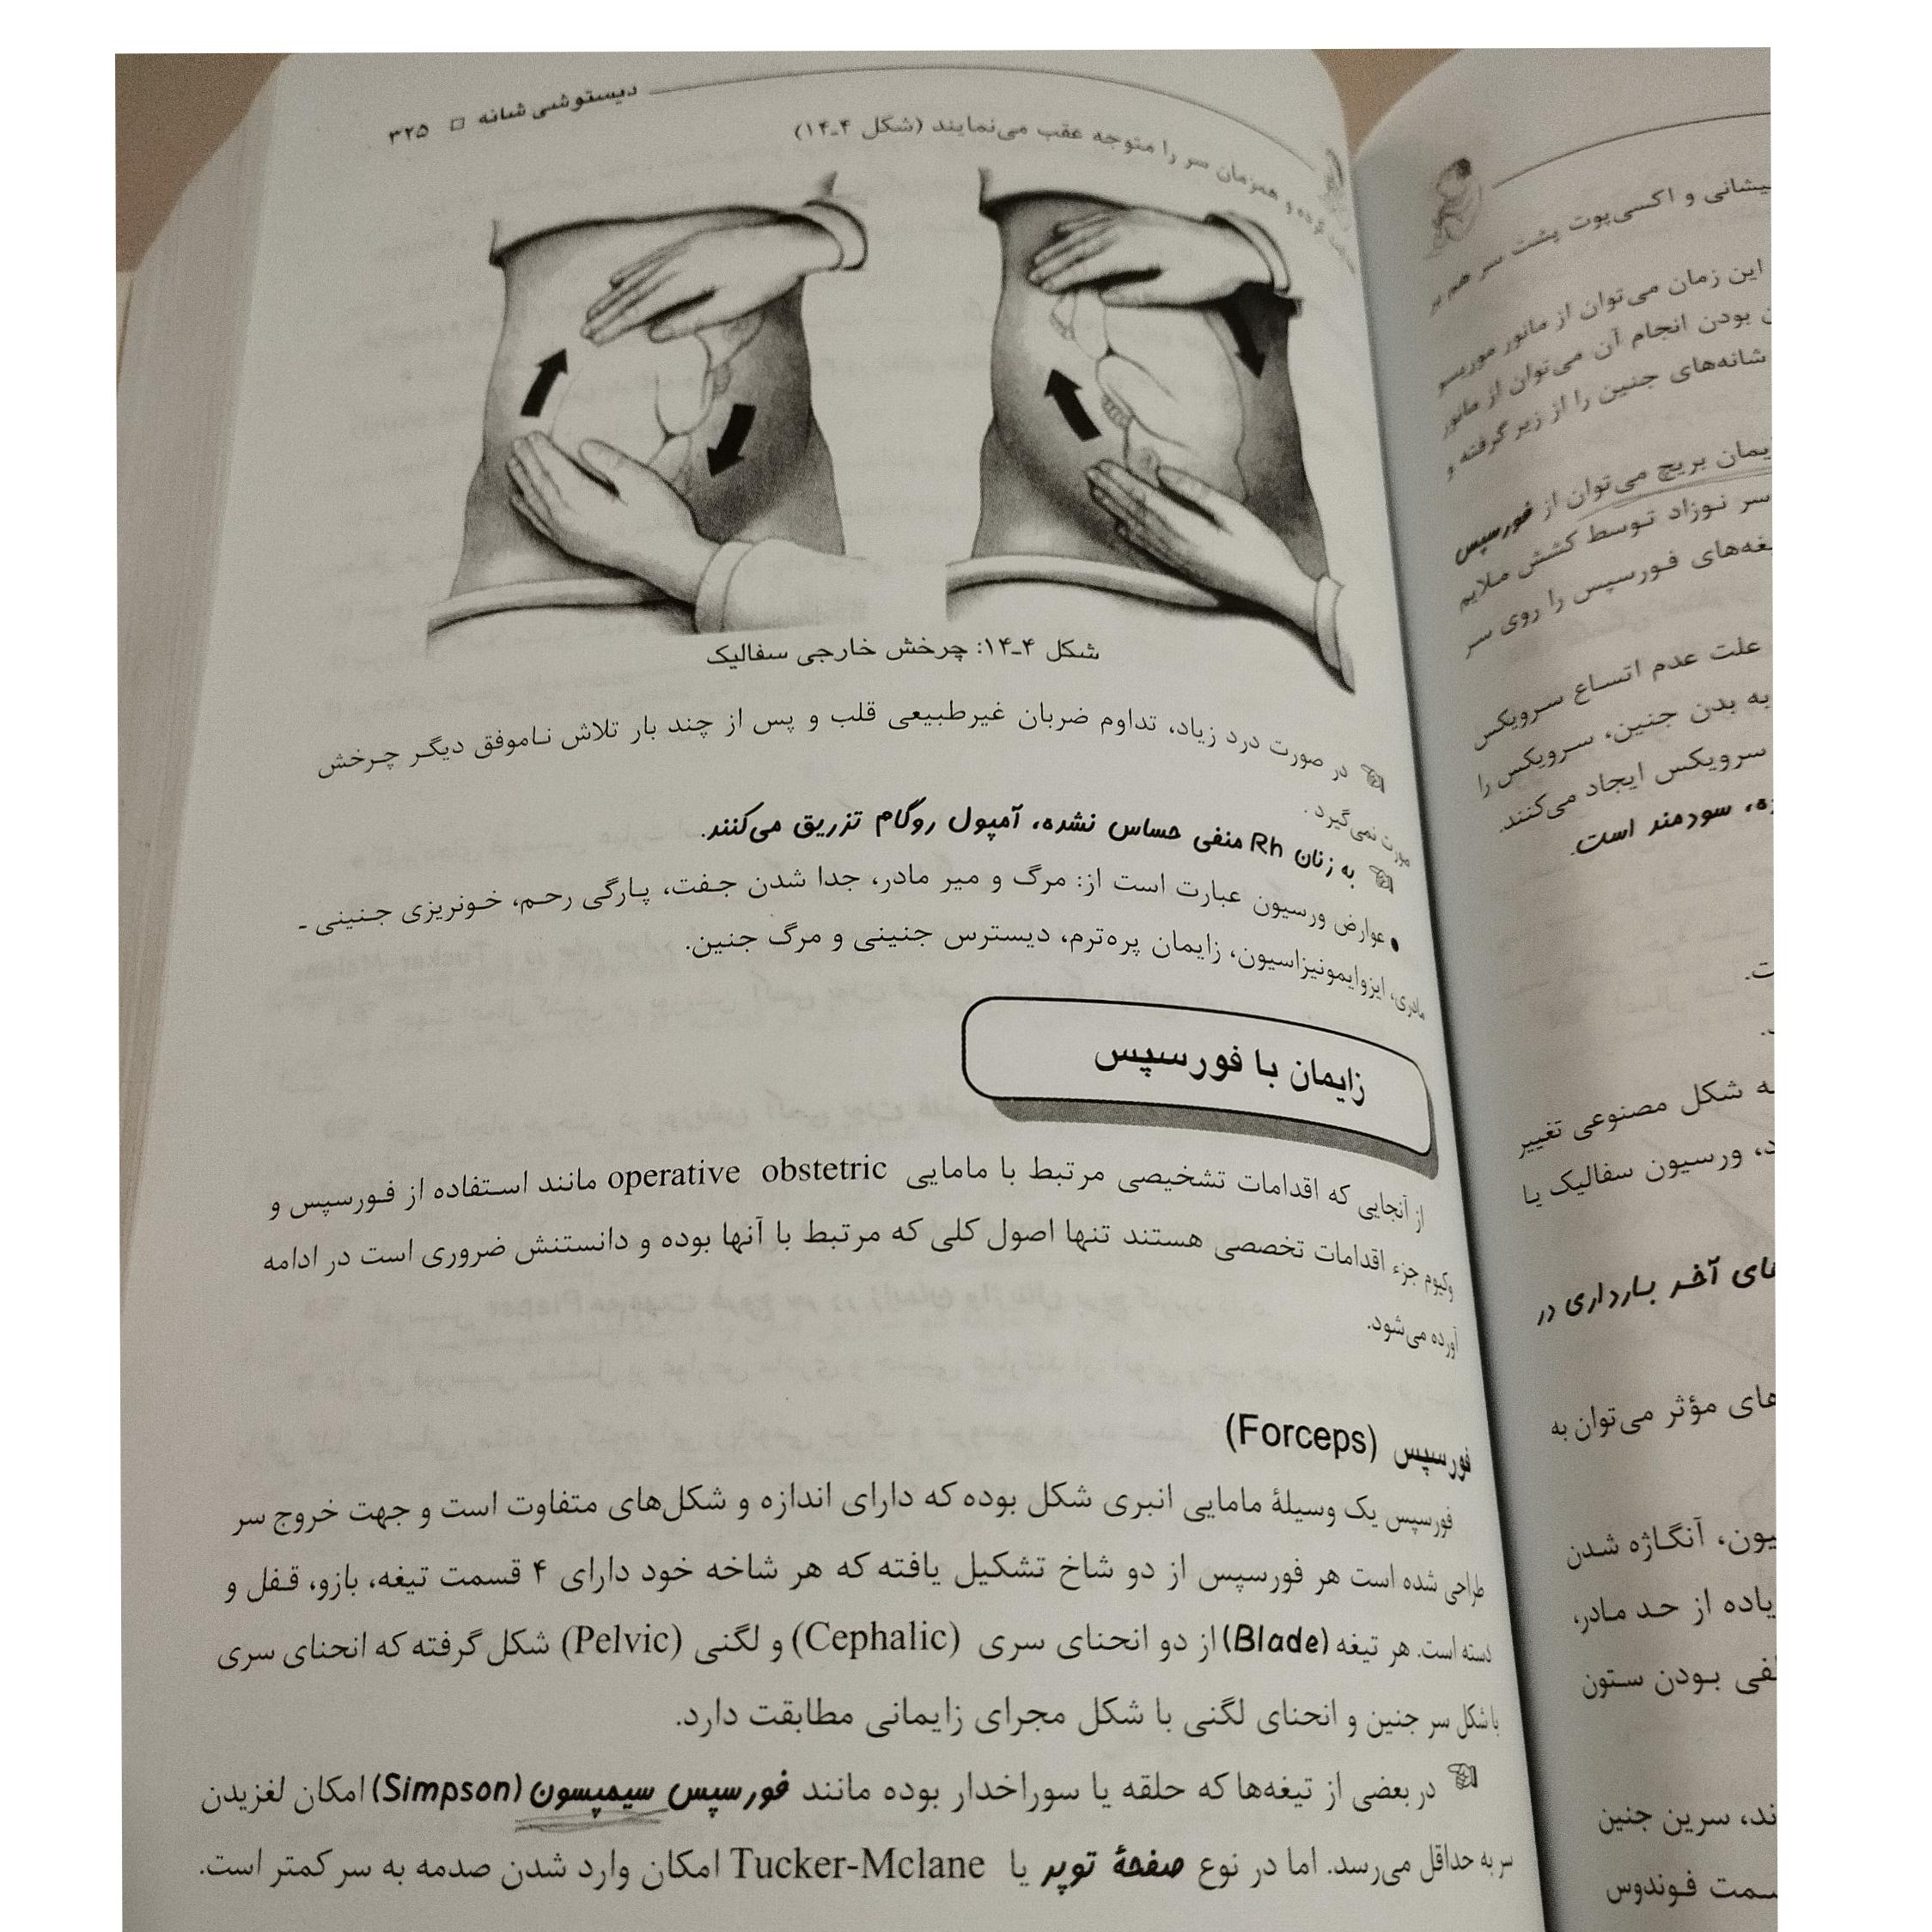 دیستوشی شانه □ ۳۲۵
کرده و همزمان سر را متوجه عقب می‌نمایند (شکل ۴ـ۱۴)
شکل ۴ـ۱۴: چرخش خارجی سفالیک
در صورت درد زیاد، تداوم ضربان غیرطبیعی قلب و پس از چند بار تلاش ناموفق دیگر چرخش
صورت نمی‌گیرد.
به زنان Rh منفی حساس نشده، آمپول روگام تزریق می‌کنند.
• عوارض ورسیون عبارت است از: مرگ و میر مادر، جدا شدن جفت، پارگی رحم، خونریزی جنینی -
مادری، ایزوایمونیزاسیون، زایمان پره‌ترم، دیسترس جنینی و مرگ جنین.
زایمان با فورسپس
از آنجایی که اقدامات تشخیصی مرتبط با مامایی operative obstetric مانند استفاده از فورسپس و
وکیوم جزء اقدامات تخصصی هستند تنها اصول کلی که مرتبط با آنها بوده و دانستنش ضروری است در ادامه
آورده می‌شود.
فورسپس (Forceps)
فورسپس یک وسیلهٔ مامایی انبری شکل بوده که دارای اندازه و شکل‌های متفاوت است و جهت خروج سر
طراحی شده است هر فورسپس از دو شاخ تشکیل یافته که هر شاخه خود دارای ۴ قسمت تیغه، بازو، قفل و
دسته است. هر تیغه (Blade) از دو انحنای سری (Cephalic) و لگنی (Pelvic) شکل گرفته که انحنای سری
با شکل سر جنین و انحنای لگنی با شکل مجرای زایمانی مطابقت دارد.
در بعضی از تیغه‌ها که حلقه یا سوراخدار بوده مانند فورسپس سیمپسون (Simpson) امکان لغزیدن
سر به حداقل می‌رسد. اما در نوع صفحهٔ توپر یا Tucker-Mclane امکان وارد شدن صدمه به سر کمتر است.
پیشانی و اکسی‌پوت پشت سر هم بر
این زمان می‌توان از مانور موریسو
بودن انجام آن می‌توان از مانور
شانه‌های جنین را از زیر گرفته و
زایمان بریچ می‌توان از فورسپس
سر نوزاد توسط کشش ملایم
تیغه‌های فورسپس را روی سر
علت عدم اتساع سرویکس
به بدن جنین، سرویکس را
سرویکس ایجاد می‌کنند.
سودمند است.
به شکل مصنوعی تغییر
ورسیون سفالیک یا
آخر بارداری در
های مؤثر می‌توان به
آنگاژه شدن
زیاده از حد مادر،
بودن ستون
سرین جنین
سمت فوندوس